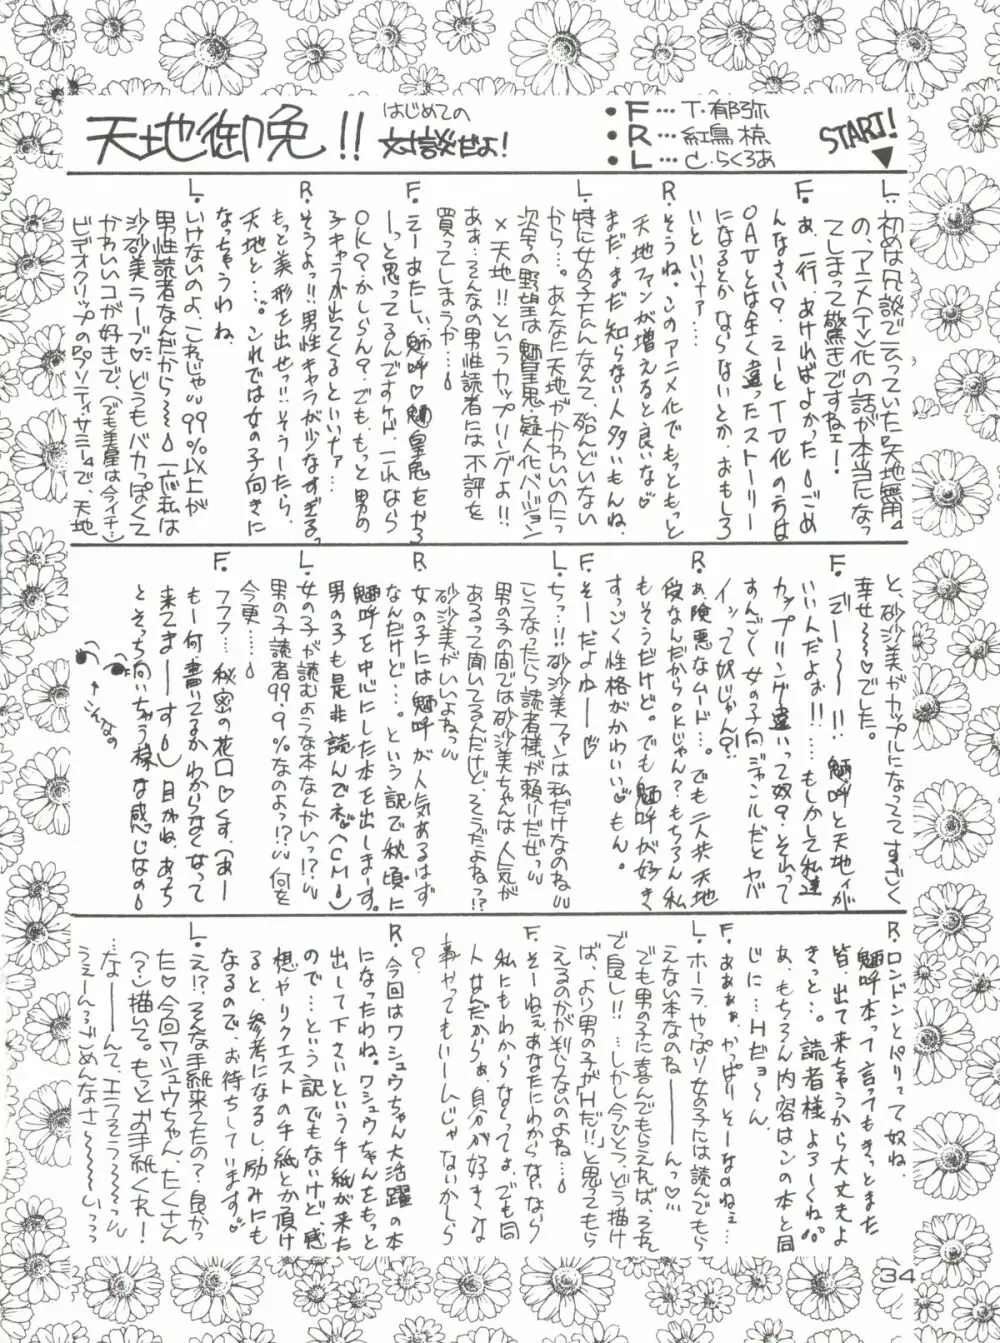 天地御免!!
はじめての
対談せよ!
・F… T・郁弥
・R… 紅鳥 椋
・L… C・らくろあ
START!
L.初めは冗談で云っていた『天地無用』
の(アニメ)TV化の話が本当になっ
てしまって驚きですねェ!
F.あ、一行、あければよかった💧ごめ
んなさい?えーとTV化の方は
OAVとは全く違ったストーリー
になるとかならないとか、おもしろ
いといいナァ…
R.そうね。このアニメ化でもっともっと
天地ファンが増えると良いな♡
まだ、まだ知らない人多いもんね。
L.特に女の子Fanなんて、殆んどいない
から…。あんなに天地がかわいいのにっ
次号の野望は魎皇鬼(擬人化バージョン)
×天地!!というカップリングよ!!
ああ…そんなの男性読者には不評を
買ってしまうか…💧
F.えーあたし、魎呼♡魎皇鬼をやろ
ーっと思ってるんですケド、これなら
OK?かしらん?でも、もっと男の
子キャラが出てくるといいナァ
R.そうよっ!!男性キャラが少なすぎるっ
もっと美形を出せっ!!そうしたら、
天地と…。これでは女の子向きに
なっちゃうわね。
L.いけないのよ、これじゃ99%以上が
男性読者なんだから〜〜💧一応私は
沙沙美ラーブ♡どうもバカっぽくて
かわいいコが好きで、(でも美星は今イチ…)
ビデオクリップの『プリティ・サミー』で、天地
と、砂沙美がカップルになっててすっごく
幸せ〜〜♡でした。
F.『ごー〜〜!!魎呼と天地ィが
いいんだよぉ!!……もしかして私達
カップリング違いって奴?そ云って
すんごく女の子向ジャンルだとヤバ
イッって奴じゃん?!
R.あ、険悪なムード…。でも二人共天地
受なんだからOKじゃん?もちろん私
もそうだけど。でも魎呼が好き
すっごく性格がかわいい♡もん。
F.そーだよゆー♡
L.ちっ…!!砂沙美ファンは私だけなのね
こうなったら読者様が頼りだぜっ
男の子の間では砂沙美ちゃんは人気が
あるって聞いてるんだけど、そうだよね?!
砂沙美がいいよねっ
R.女の子には魎呼が人気あるはず
なんだけど…。という訳で秋頃に
魎呼を中心にした本を出します。
男の子も是非読んでネ♡(CM💧)
L.女の子が読むような本なんかいっ!?
男の子読者99.9%なのよっ!?何を
今更……💧
F.フフフ…秘密の花ロ♡くす(あー
もー何書いてるかわからなくなって
来てまーす💧)目がね、あっち
とそっち向いちゃう様な感じなの💧
↑こんなの
R.ロンドンとパリって奴ね。
魎呼本って言ってもきっとまた
皆、出て来ちゃうから大丈夫よ
きっと…。読者様よろーくね。
あ、もちろん内容はこの本と同
じに…Hだョ〜ん
F.あああぁ、やっぱりそーなのねェ…
L.ホーラ、やっぱり女の子には読んでもら
えない本なのね――んっ♡
でも男の子に喜んでもらえれば、それ
で良し!!…しかし今ひとつ、どう描け
ば、より男の子が『Hだ!!』と思ってもら
えるのかが判らないのよね…💧
F.そーねェ、あなたにわからないなら
私にもわから〜なくってよ。でも同
人なんだからぁ、自分が好きな
事やってもいーんじゃないかしら
?
R.今回はワシュウちゃん大活躍の本
になったわね。ワシュウちゃんをもっと
出して下さいという手紙が来た
ので…という訳でもないけど、感
想やリクエストの手紙とか頂け
ると、参考になるし、励みにも
なるので、お待ちしています♡
L.え!?そんな手紙来てたの?良かっ
た♡今回ワシュウちゃん、たくさん
(?)描いて。もっとお手紙くれ!
…な〜んて、エラそう〜〜っ
うえーん、ごめんなさ〜〜いっっ
34